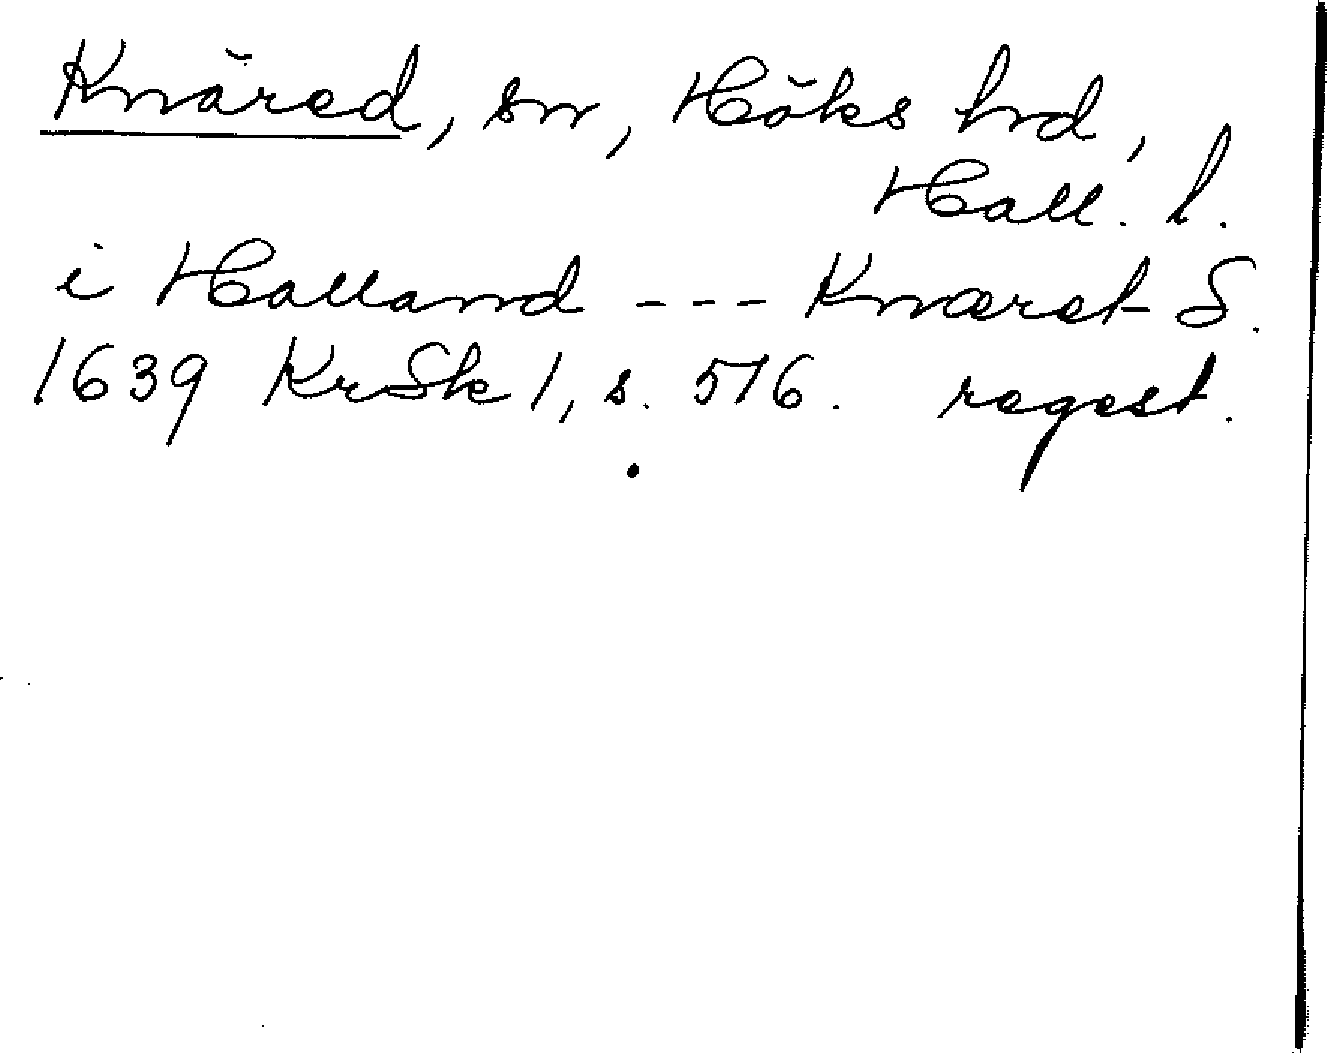 Knäred, sn, Höks hd,
Hall. l.
i Halland --- Knæret S.
1639 KrSk 1, s. 576. regest.